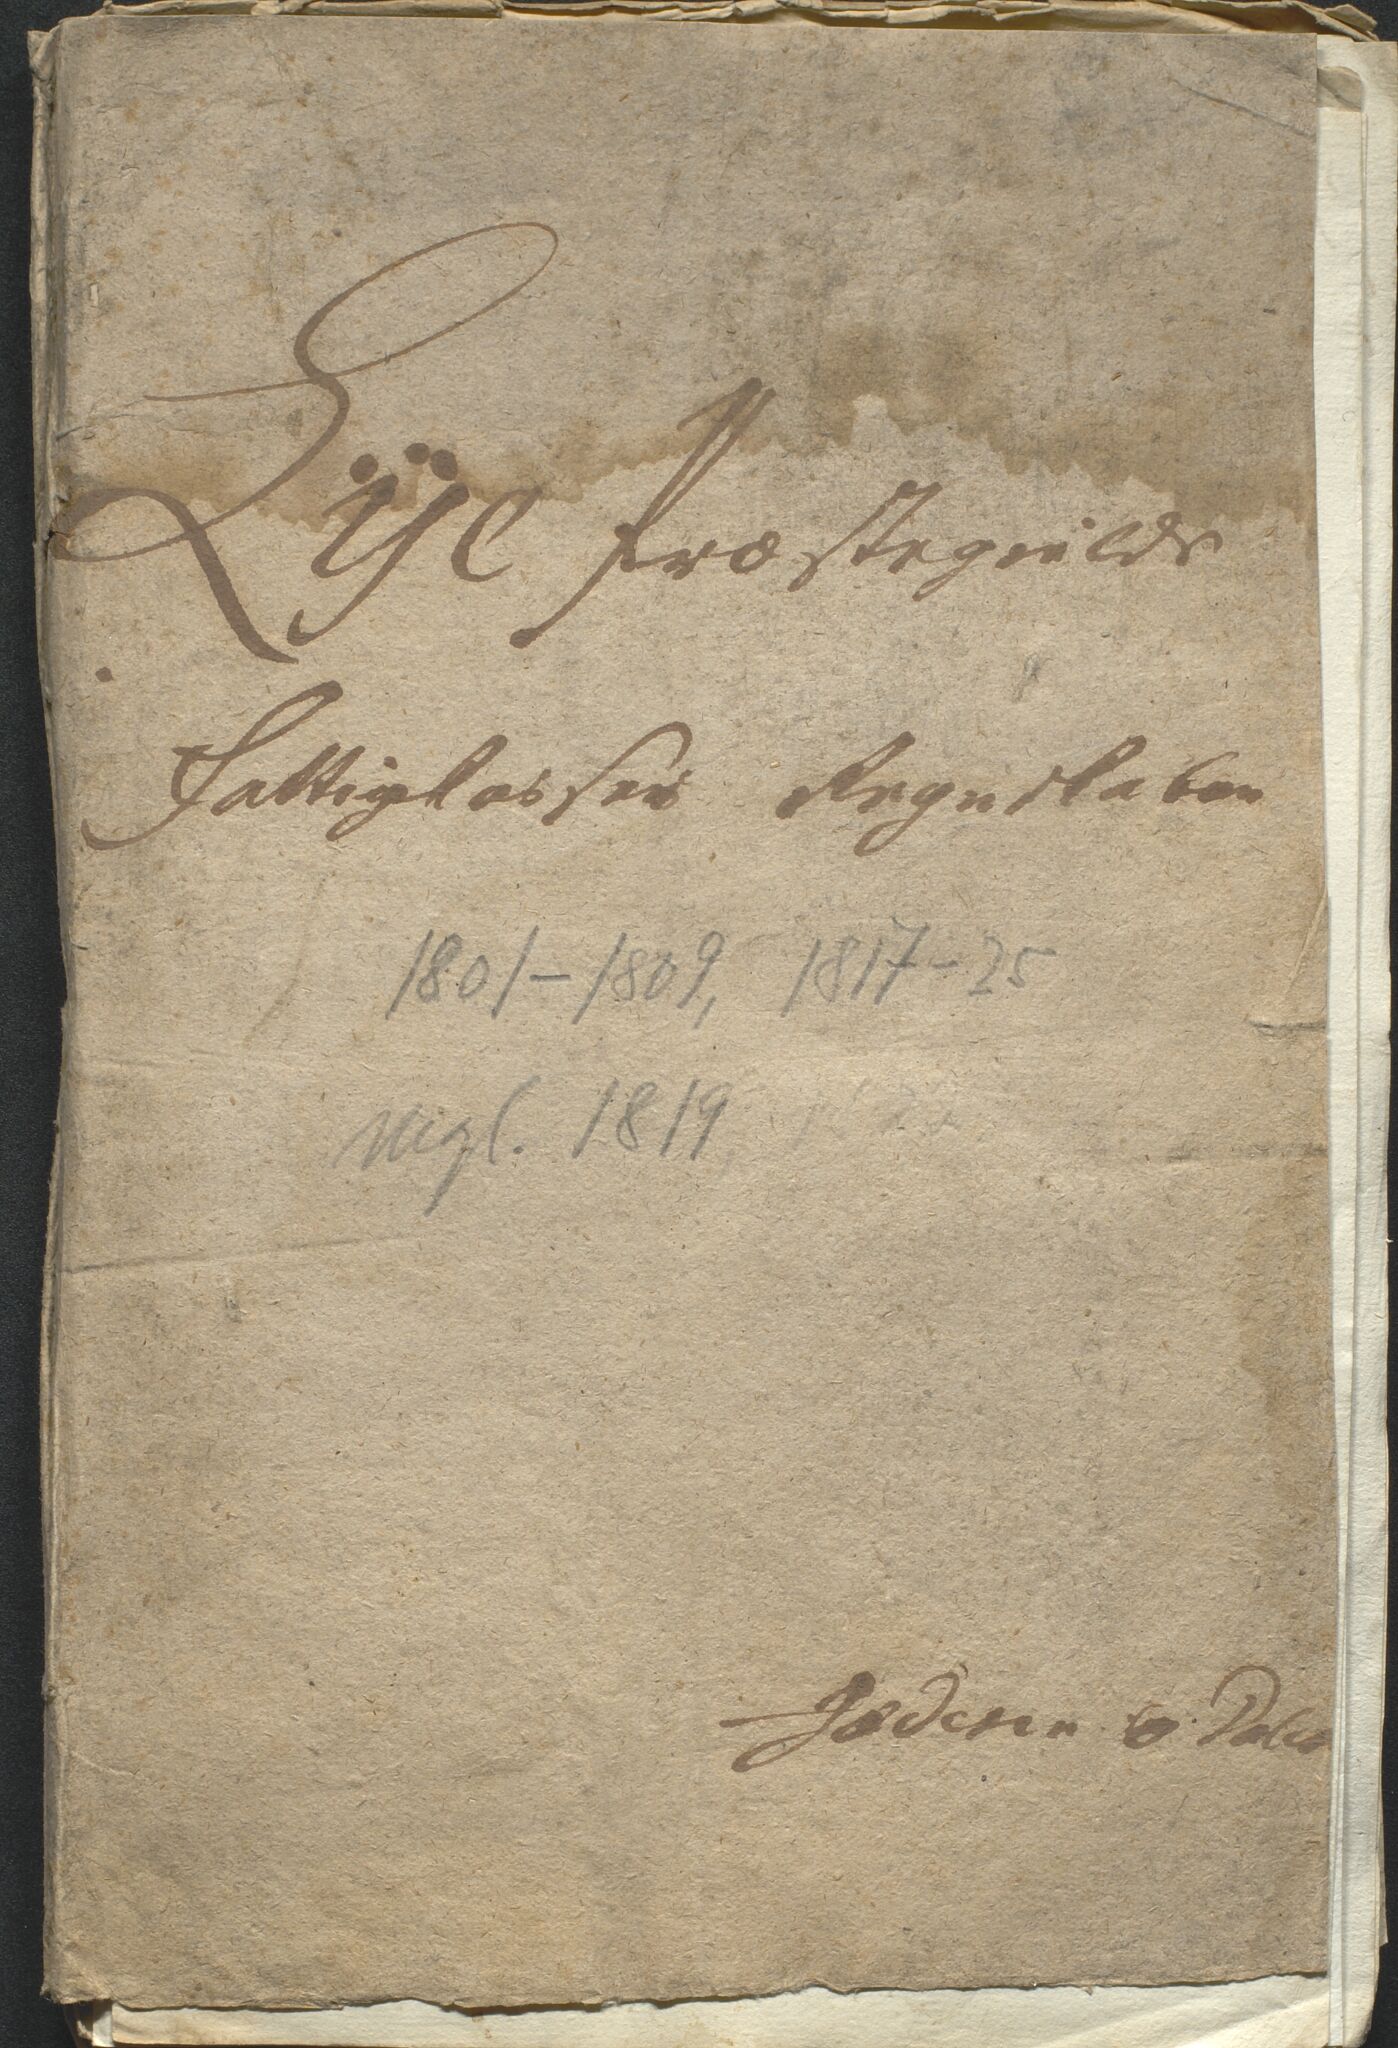 Lÿe Præstegields
Fattigkasses Regnskaber
1801-1809, 1817-25
Mgl. 1819,
Jæderen og Dal